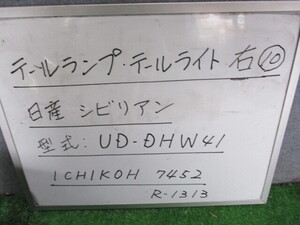 テールランプ・テールライト 右⑩
日産 シビリアン
型式: UD-DHW41
ICHIKOH 7452
R-1313